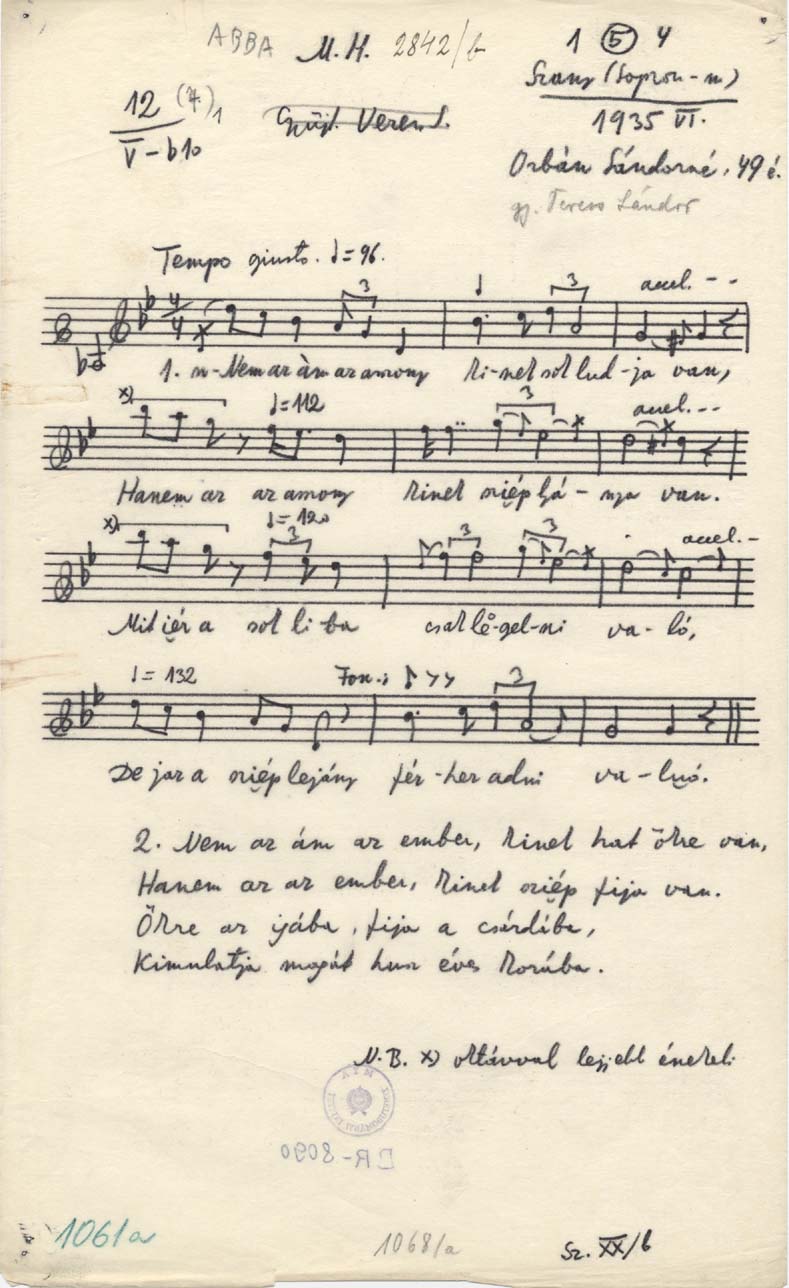 ABBA M. H. 2842/b
1 5 4
Szany (Sopron-m)
12 (7.) 1
V-b10
Gyüjt. Veress S.
1935 VI.
Orbán Sándorné, 49 é.
gy. Veress Sándor
Tempo giusto. ♩= 96.
3 3 accel. - -
4/4
1. n-Nem az ám az amony Kinek sok lud-ja van,
x) ♩=112 3 accel. - -
Hanem az az amony kinek sziép ljá - nya van.
x) ♩= 120 3 3 3 accel. -
Mit iér a sok li ba csak lë-gel-ni va - ló,
♩= 132 Fon.: 3
De jaz a sziép lejány fér-hez adni va - luó.
2. Nem az ám az ember, kinek hat ökre van,
Hanem az az ember, kinek sziép fija van.
Ökre az igába, fija a csárdába,
Kimulatja magát husz éves korába.
N. B. x) oktávval lejjebb énekli
BR-8090
1061/a
1068/a
Sz. XX/6